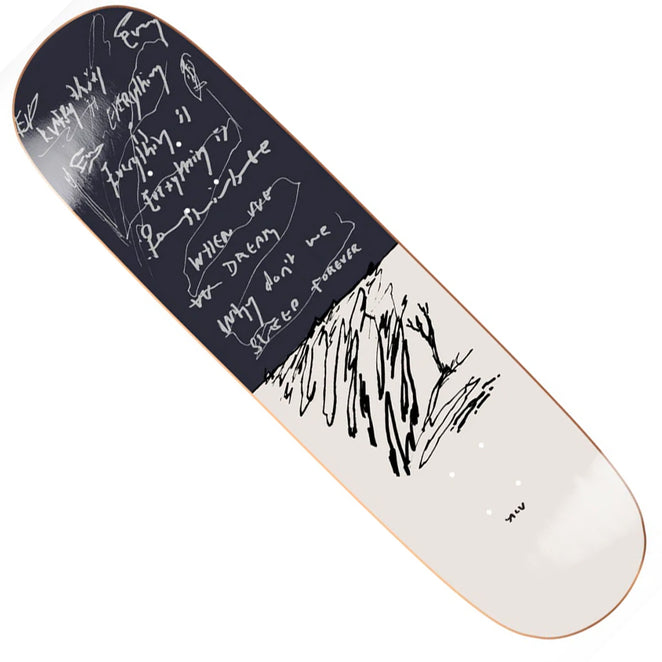 Every
Everything
Everything
Eve
Everything is
Everything is
Possible
WHEN WE
DREAM
Why don't we
SLEEP FOREVER